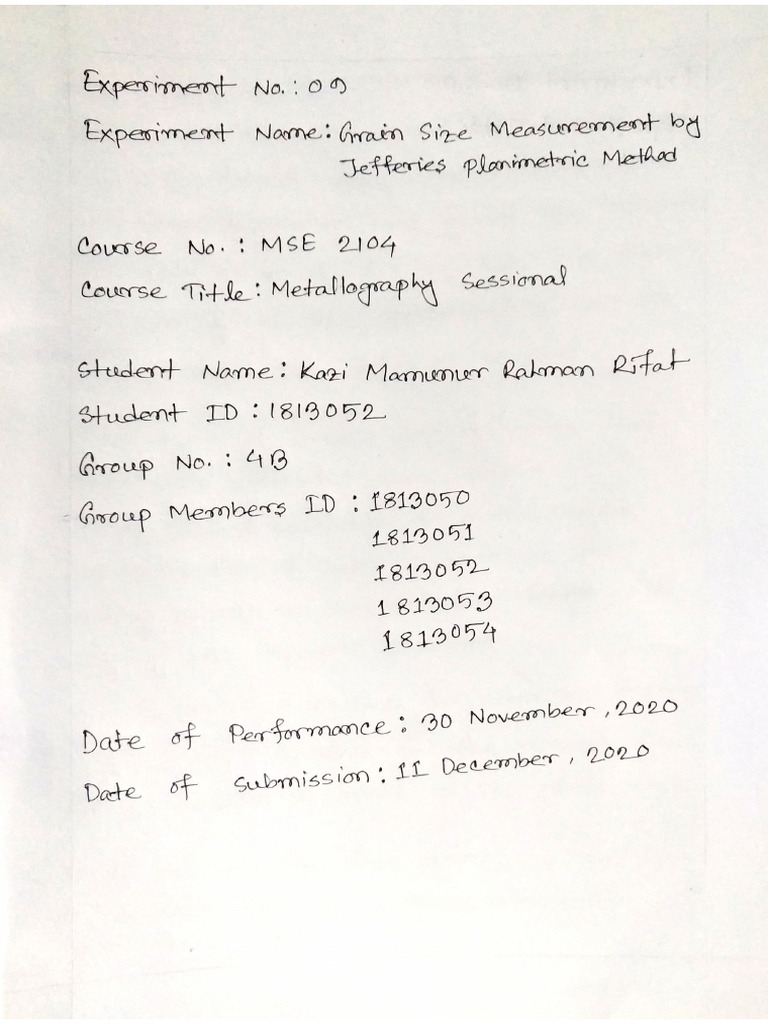 Experiment No.: 09
Experiment Name: Grain Size Measurement by
Jefferies Planimetric Method
Course No.: MSE 2104
Course Title: Metallography Sessional
Student Name: Kazi Mamunur Rahman Rifat
Student ID: 1813052
Group No.: 4B
Group Members ID: 1813050
1813051
1813052
1813053
1813054
Date of Performance: 30 November, 2020
Date of Submission: 11 December, 2020